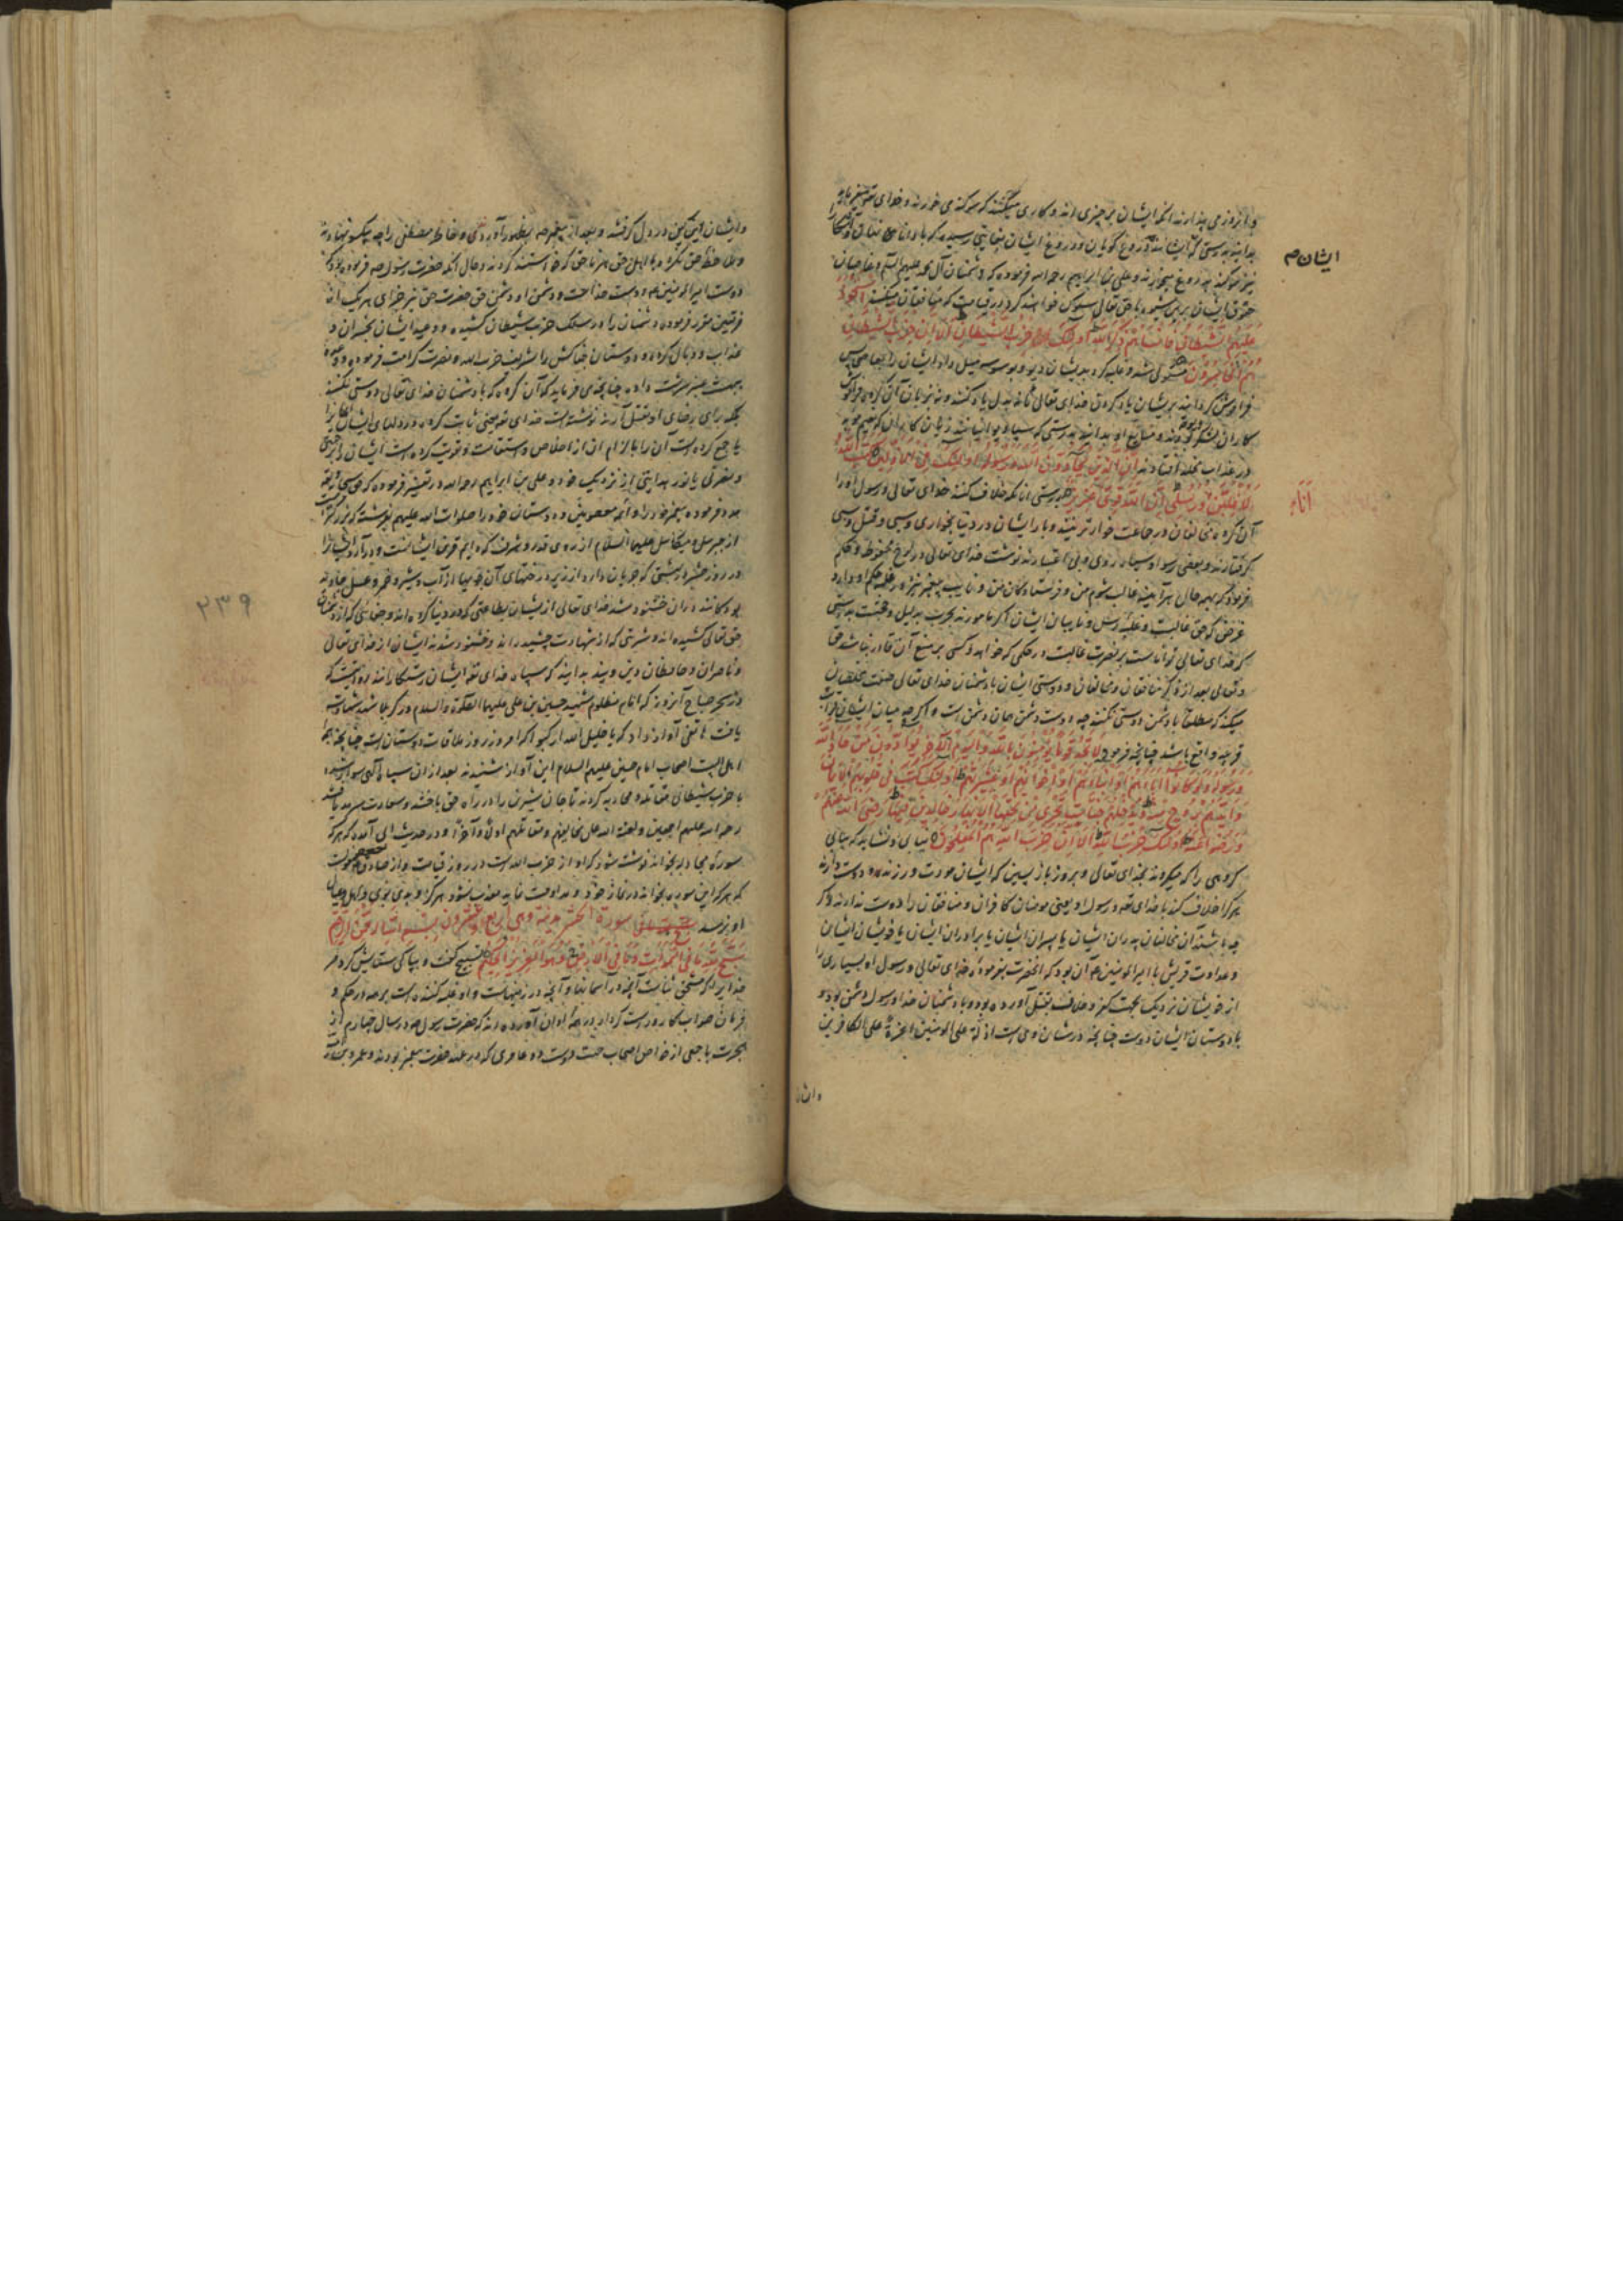 و از روز می پندارند انکه ایشان بر چیزی اند و کاری میکنند که سوکند می خورند و خدای تعالی میفرماید
بدانید بدرستی که ایشانند دروغ گویان و دروغ ایشان بغایتی رسیده که با دانای نفاق
ایشان
نیز سوکند بدروغ میخورند و علی بن ابراهیم رحمه الله فرموده که دشمنان آل محمد علیهم السلم و غاصبان
حقوق ایشان برین شیوه با حق تعالی سلوک خواهند کرد در قیامت که منافقان میکنند استحوذ
علیهم الشیطان فانسیهم ذکر الله اولئک حزب الشیطان الا ان حزب الشیطان
هم الخاسرون مستولی شد و غلبه کرد بدیشان دیو و بوسوسه میل داد ایشان را بمعاصی پس
فراموش گردانید بریشان یاد کردن خدای تعالی تا نه بدل یاد کنند و نه بزبان آن گروه فراموش
کاران لشکر دیوند و متابع او بدانید بدرستی که سپاه دیو ایشانند زیان کاران که
در عذاب مخلد افتادند ان الذین یحادون الله و رسوله اولئک فی الاذلین کتب الله
لاغلبن انا و رسلی ان الله قوی عزیز بدرستی انانکه خلاف کنند خدای تعالی و رسول او را
آن گروه مخالفان در جماعت خوارترینند و با ایشان در دنیا بخواری و سبی و قتل
گرفتارند و بعضی رسوا و سیاه روی و بی اعتبارند نوشت خدای تعالی در لوح محفوظ و حکم
فرمود که بهمه حال هر آینه غالب شوم من و فرستادگان من و نایب پیغمبر نیز در غلبه حکم او دارد
غرض که حق غالبست و غلبه رسل و نایبان ایشان اگر مامورند بحرب بدلیل و حجت بدرستی
که خدای تعالی تواناست بر نصرت غالبست در حکمی که خواهد و کسی بر منع آن قادر نباشد حق
و تعالی بعد از ذکر منافقان و مخالفان و دوستی ایشان با دشمنان خدای تعالی صفت مخلصان
میکند که مطلقا با دشمن دوستی نکنند چه دوست دشمن همان دشمن است و اگرچه میان ایشان قرابت
قریبه واقع باشد چنانچه فرمود لا تجد قوما یؤمنون بالله و الیوم الآخر یوادون من حاد الله
و رسوله و لو کانوا آباءهم او ابناءهم او اخوانهم او عشیرتهم اولئک کتب فی قلوبهم الایمان
و ایدهم بروح منه و یدخلهم جنات تجری من تحتها الانهار خالدین فیها رضی الله عنهم
و رضوا عنه اولئک حزب الله الا ان حزب الله هم المفلحون نیابی و نشاید که بیابی
گروهی را که میگروند بخدای تعالی و بروز باز پسین که ایشان مودت ورزند و دوست دارند
هر که را خلاف کند با خدای تعه و رسول او یعنی مومنان کافران و منافقان را دوست ندارند و اگر
چه باشند آن مخالفان پدران ایشان یا پسران ایشان یا برادران ایشان یا خویشان ایشان
و عداوت قریش با امیرالمومنین ع آن بود که آنحضرت بفرموده خدای تعالی و رسول او بسیاری را
از خویشان نزدیک بجهت کفر و خلاف بقتل آورده بود و با دشمنان خدا و رسول دشمن بود و
با دوستان ایشان دوست چنانچه در شان وی است اذلة علی المومنین اعزة علی الکافرین
و ایشان
و ایشان این کین در دل گرفتند و بعد از پیغمبر ص بظهور آوردندی و خاطر مصطفی را چه یکسو نهادند
دوست امیرالمومنین ع دوست خداست و دشمن او دشمن حق حضرت حق نیز جزای هر یک از
فرقتین مقرر فرموده دشمنان را در سلک حزب شیطان کشیده و وعید ایشان بخسران و
عذاب و وبال کرده و دوستان جفاکش را بشریف حزب الله و نصرت کرامت فرموده و وعده
بهشت عنبر سرشت داده چنانچه می فرماید که آن گروه که با دشمنان خدای تعالی دوستی نکنند
بلکه برای رضای او بقتل آرند نوشته است خدای تعه یعنی ثابت کرده در دلهای ایشان ایمان را
یا جمع کرده است آن را با لوازم آن از اخلاص و استقامت و قوت کرده است ایشان را برحمتی
و نصرتی یا نور هدایتی از نزدیک خود و علی بن ابراهیم رحمه الله در تفسیر فرموده که حق سبحانه تعه
مدد فرموده پیغمبر خود را و ائمه معصومین و دوستان خود را صلوات الله علیهم بفرشته که بزرگتر است
از جبرئیل و میکائیل علیهما السلام از روی قدر و شرف که دایم قرین ایشانست و درآرد ایشان را
در روز حشر در بهشتی که جریان دارد از زیر درختهای آن جویها از آب و شیر و خمر و عسل جاوید
بودگانند در ان خشنود شد خدای تعالی از یشان بطاعتی که در دنیا کرده اند و جفائی که از دشمنان
حق تعالی کشیده اند و شربتی که از شهادت چشیده اند و خشنود شدند ایشان از خدای تعالی
و ناصران و حافظان دین ویند بدانید که سپاه خدای تعه ایشان رستگارانند
در سحر صباح آنروز که امام مظلوم شهید حسین بن علی علیهما الصلوة والسلام در کربلا شرف شهادت
یافت هاتفی آواز داد که یا خلیل الله ارکبوا که امروز روز ملاقات دوستان است چنانچه
اهل البیت اصحاب امام حسین علیهم السلام این آواز شنیدند بعد از ان سپاه الهی سوار شده
با حزب شیطانی مقاتله و محاربه کردند تا جان شیرین را در راه حق باختند و سعادت سرمد یافتند
رحمة الله علیهم اجمعین و لعنة الله علی مخالفیهم و مقاتلیهم اولا و آخرا و در حدیث ابی آمده که هر که
سوره مجادله بخواند نوشته شود که او از حزب الله است در روز قیامت و از صادق ع مرویست
که هر که این سوره بخواند در نماز خود و مداومت نماید معذب نشود هرگز او و بدی بوی و اهل و عیال
او نرسد سورة الحشر مدنیة و هی اربع و عشرون بسم الله الرحمن الرحیم
سبح لله ما فی السموات و ما فی الارض و هو العزیز الحکیم تسبیح گفت و بپاکی ستایش کرد مر
خدایرا که مستحق ثناست آنچه در آسمانها و آنچه در زمینهاست و او غلبه کننده است بر همه در حکم و
فرمان صواب کار و راست کردار آورده اند که حضرت رسول ص در سال چهارم از
هجرت با جمعی از خواص اصحاب
۲۳۹